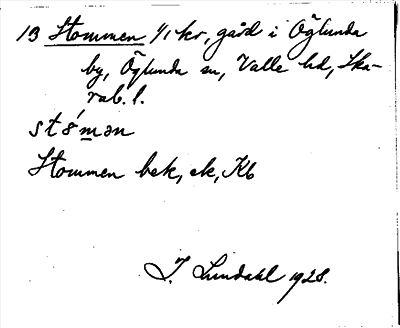 13 Stommen 1/1 kr, gård i Öglunda
by, Öglunda sn, Valle hd, Ska-
rab. l.
stómən
Stommen bek, ek, Kb
J. Lundahl 1928.